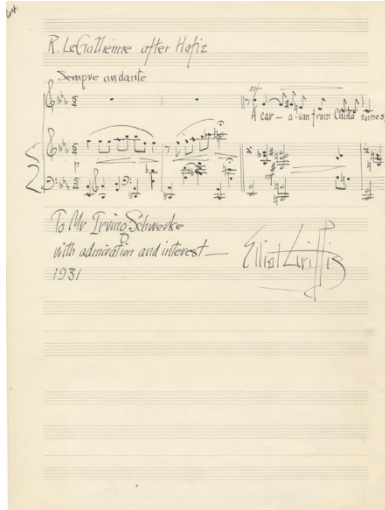 R. LeGallienne after Hafiz
Sempre andante
mf
A car - a-van from China comes
p
To Mr Irving Schwerke
with admiration and interest—
1931
Elliot Griffis